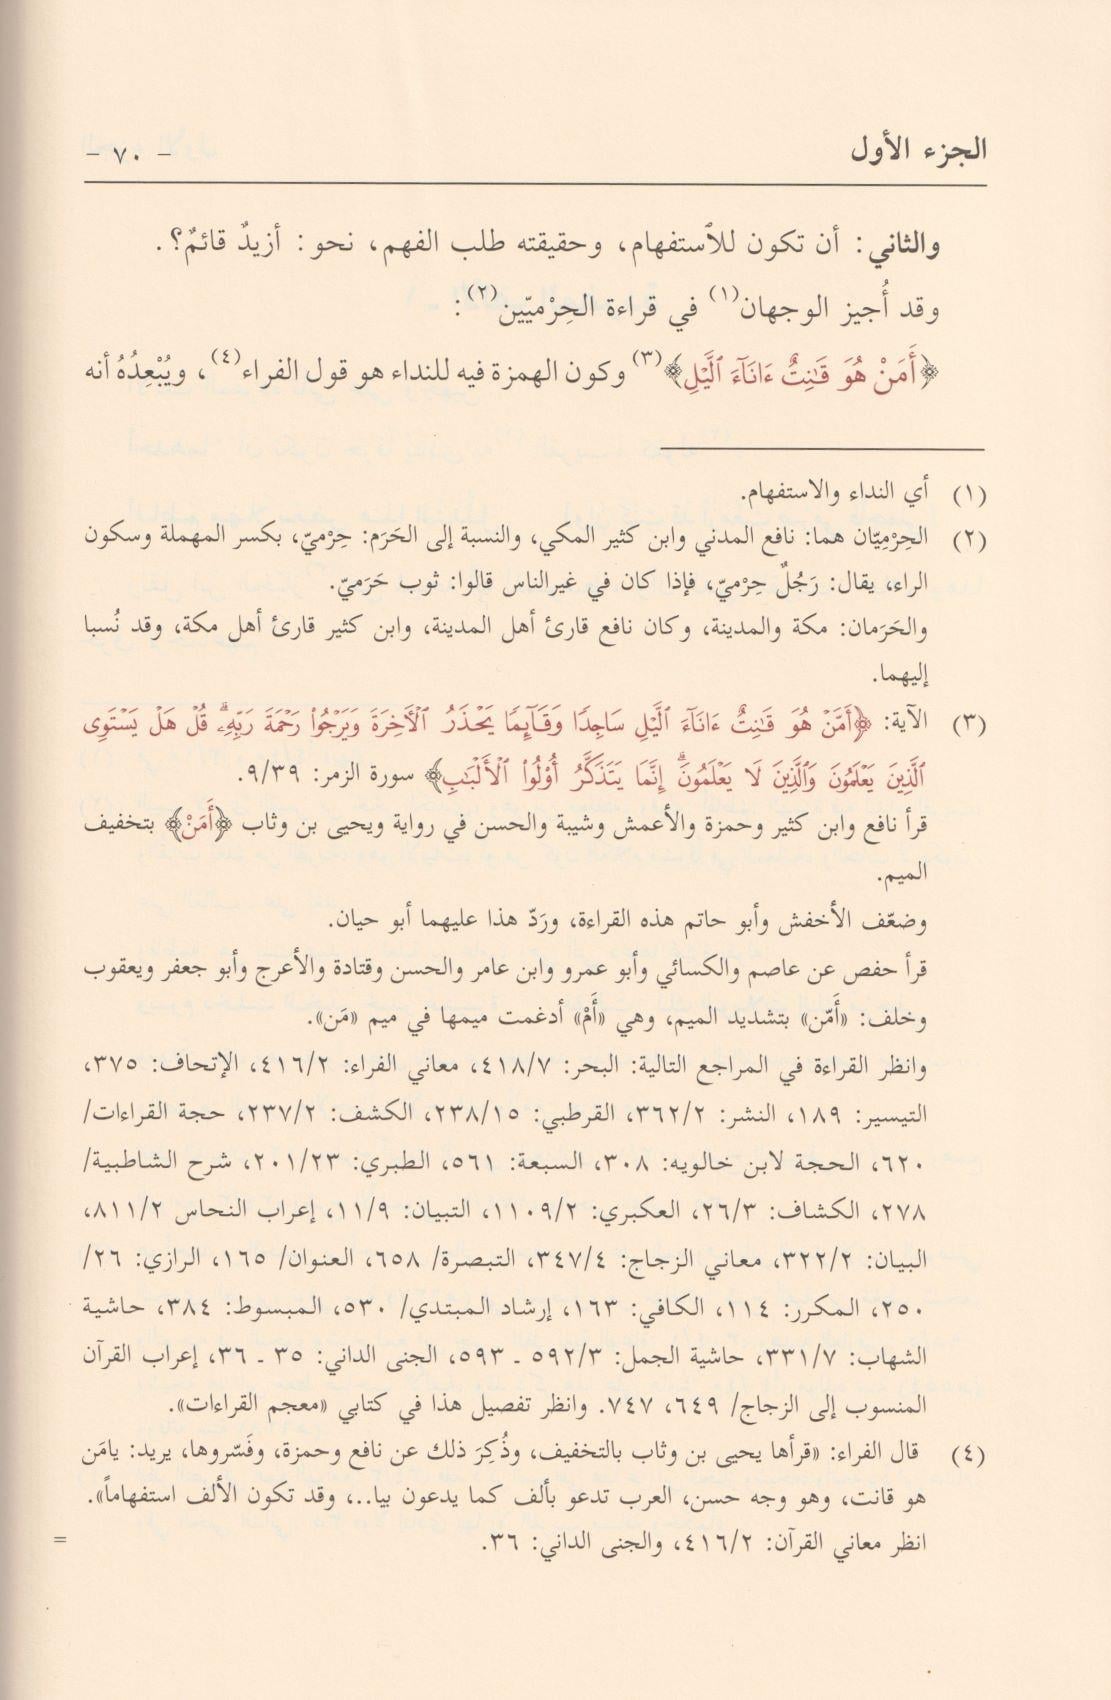 الجزء الأول
- ٧٠ -
والثاني: أن تكون للٱستفهام، وحقيقته طلب الفهم، نحو: أزيدٌ قائمٌ؟.
وقد أُجيز الوجهان(١) في قراءة الحِرْميّين(٢):
﴿أَمَنْ هُوَ قَٰنِتٌ ءَانَآءَ ٱلَّيْلِ﴾(٣) وكون الهمزة فيه للنداء هو قول الفراء(٤)، ويُبْعِدُهُ أنه
(١) أي النداء والاستفهام.
(٢) الحِرْمِيّان هما: نافع المدني وابن كثير المكي، والنسبة إلى الحَرَم: حِرْميّ، بكسر المهملة وسكون
الراء، يقال: رَجُلٌ حِرْميّ، فإذا كان في غيرالناس قالوا: ثوب حَرَميّ.
والحَرَمان: مكة والمدينة، وكان نافع قارئ أهل المدينة، وابن كثير قارئ أهل مكة، وقد نُسبا
إليهما.
(٣) الآية: ﴿أَمَّنْ هُوَ قَٰنِتٌ ءَانَآءَ ٱلَّيْلِ سَاجِدًا وَقَآئِمًا يَحْذَرُ ٱلْأٓخِرَةَ وَيَرْجُوا۟ رَحْمَةَ رَبِّهِۦۗ قُلْ هَلْ يَسْتَوِى
ٱلَّذِينَ يَعْلَمُونَ وَٱلَّذِينَ لَا يَعْلَمُونَۗ إِنَّمَا يَتَذَكَّرُ أُو۟لُوا۟ ٱلْأَلْبَٰبِ﴾ سورة الزمر: ٩/٣٩.
قرأ نافع وابن كثير وحمزة والأعمش وشيبة والحسن في رواية ويحيى بن وثاب ﴿أَمَنْ﴾ بتخفيف
الميم.
وضعّف الأخفش وأبو حاتم هذه القراءة، ورَدّ هذا عليهما أبو حيان.
قرأ حفص عن عاصم والكسائي وأبو عمرو وابن عامر والحسن وقتادة والأعرج وأبو جعفر ويعقوب
وخلف: «أَمّن» بتشديد الميم، وهي «أَمْ» أدغمت ميمها في ميم «مَن».
وانظر القراءة في المراجع التالية: البحر: ٤١٨/٧، معاني الفراء: ٤١٦/٢، الإتحاف: ٣٧٥،
التيسير: ١٨٩، النشر: ٣٦٢/٢، القرطبي: ٢٣٨/١٥، الكشف: ٢٣٧/٢، حجة القراءات/
٦٢٠، الحجة لابن خالويه: ٣٠٨، السبعة: ٥٦١، الطبري: ٢٠١/٢٣، شرح الشاطبية/
٢٧٨، الكشاف: ٢٦/٣، العكبري: ١١٠٩/٢، التبيان: ١١/٩، إعراب النحاس ٨١١/٢،
البيان: ٣٢٢/٢، معاني الزجاج: ٣٤٧/٤، التبصرة/ ٦٥٨، العنوان/ ١٦٥، الرازي: ٢٦/
٢٥٠، المكرر: ١١٤، الكافي: ١٦٣، إرشاد المبتدي/ ٥٣٠، المبسوط: ٣٨٤، حاشية
الشهاب: ٣٣١/٧، حاشية الجمل: ٥٩٢/٣ ـ ٥٩٣، الجنى الداني: ٣٥ ـ ٣٦، إعراب القرآن
المنسوب إلى الزجاج/ ٦٤٩، ٧٤٧. وانظر تفصيل هذا في كتابي «معجم القراءات».
(٤) قال الفراء: «قرأها يحيى بن وثاب بالتخفيف، وذُكِرَ ذلك عن نافع وحمزة، وفَسّروها، يريد: يامَن
هو قانت، وهو وجه حسن، العرب تدعو بألف كما يدعون بيا..، وقد تكون الألف استفهاماً».
انظر معاني القرآن: ٤١٦/٢، والجنى الداني: ٣٦. =